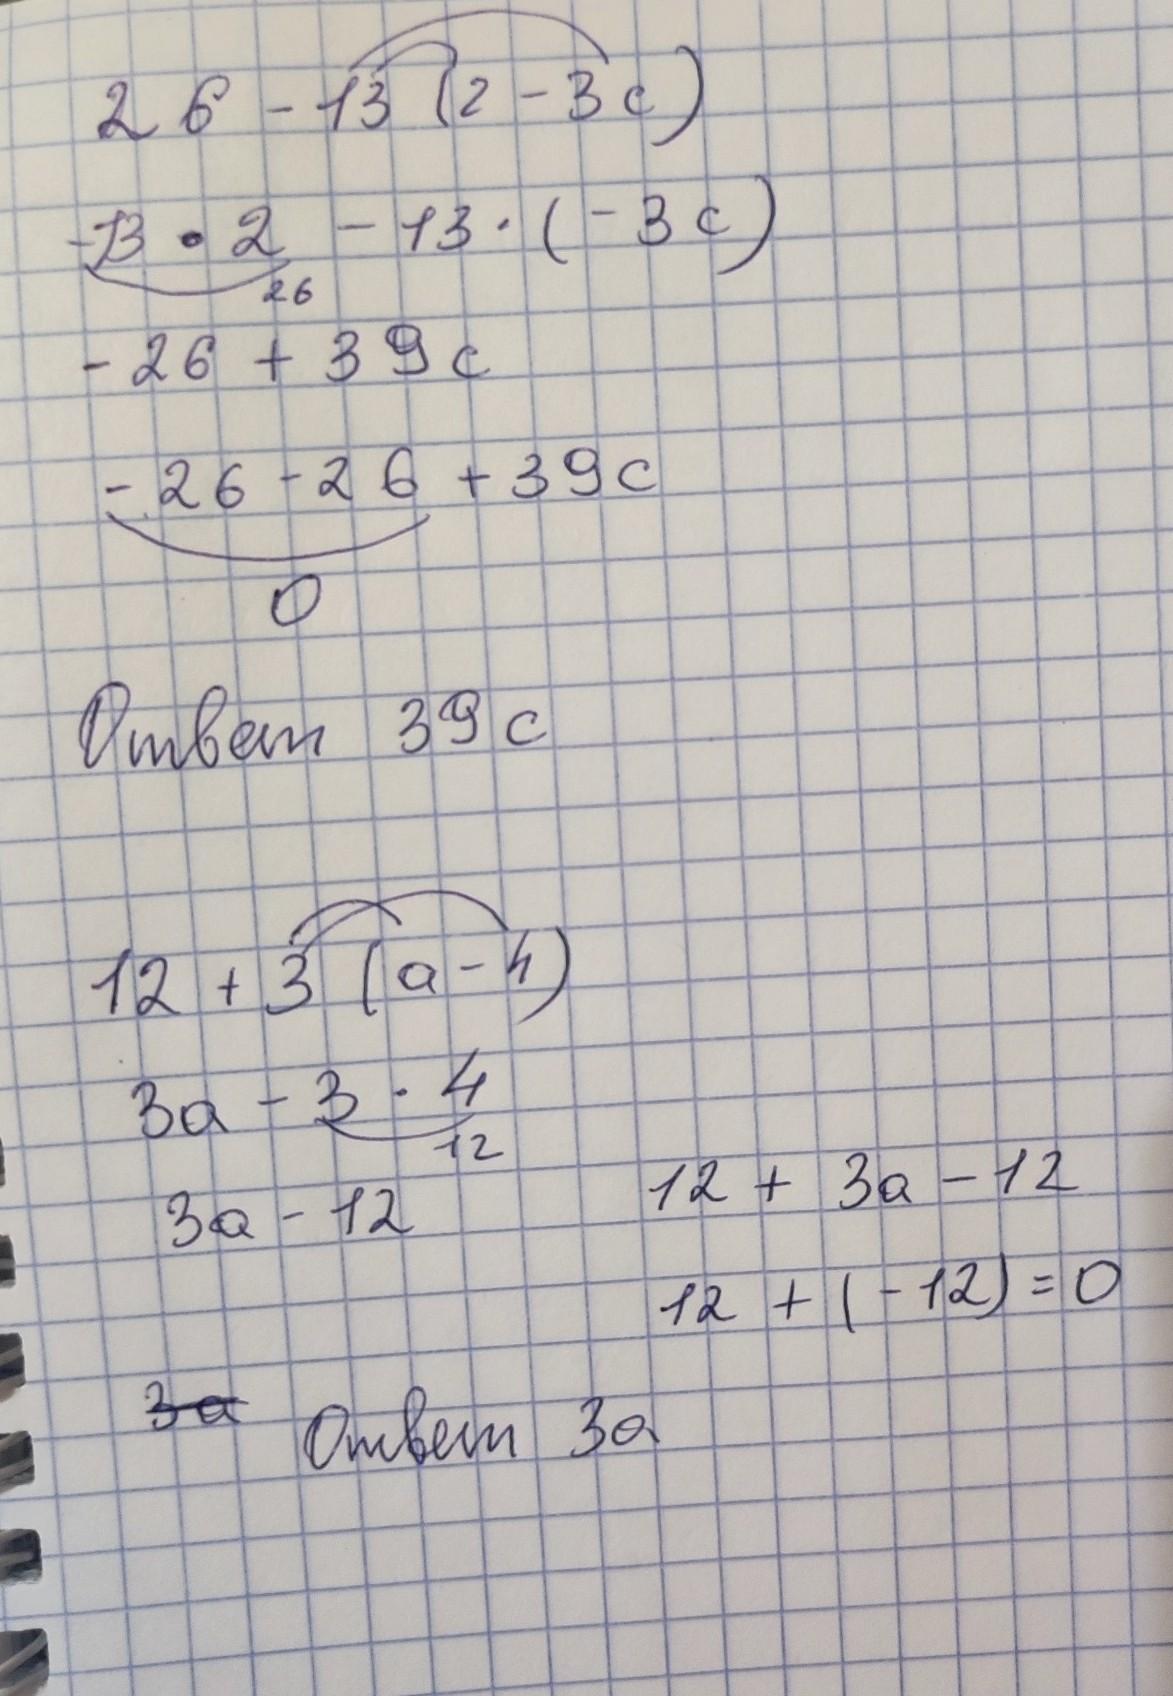 26 - 13 (2 - 3c)
-13 • 2 - 13 · (-3c)
26
-26 + 39c
-26 - 26 + 39c
0
Ответ 39c
12 + 3 (a - 4)
3a - 3 · 4
12
3a - 12
12 + 3a - 12
12 + (-12) = 0
3a Ответ 3a